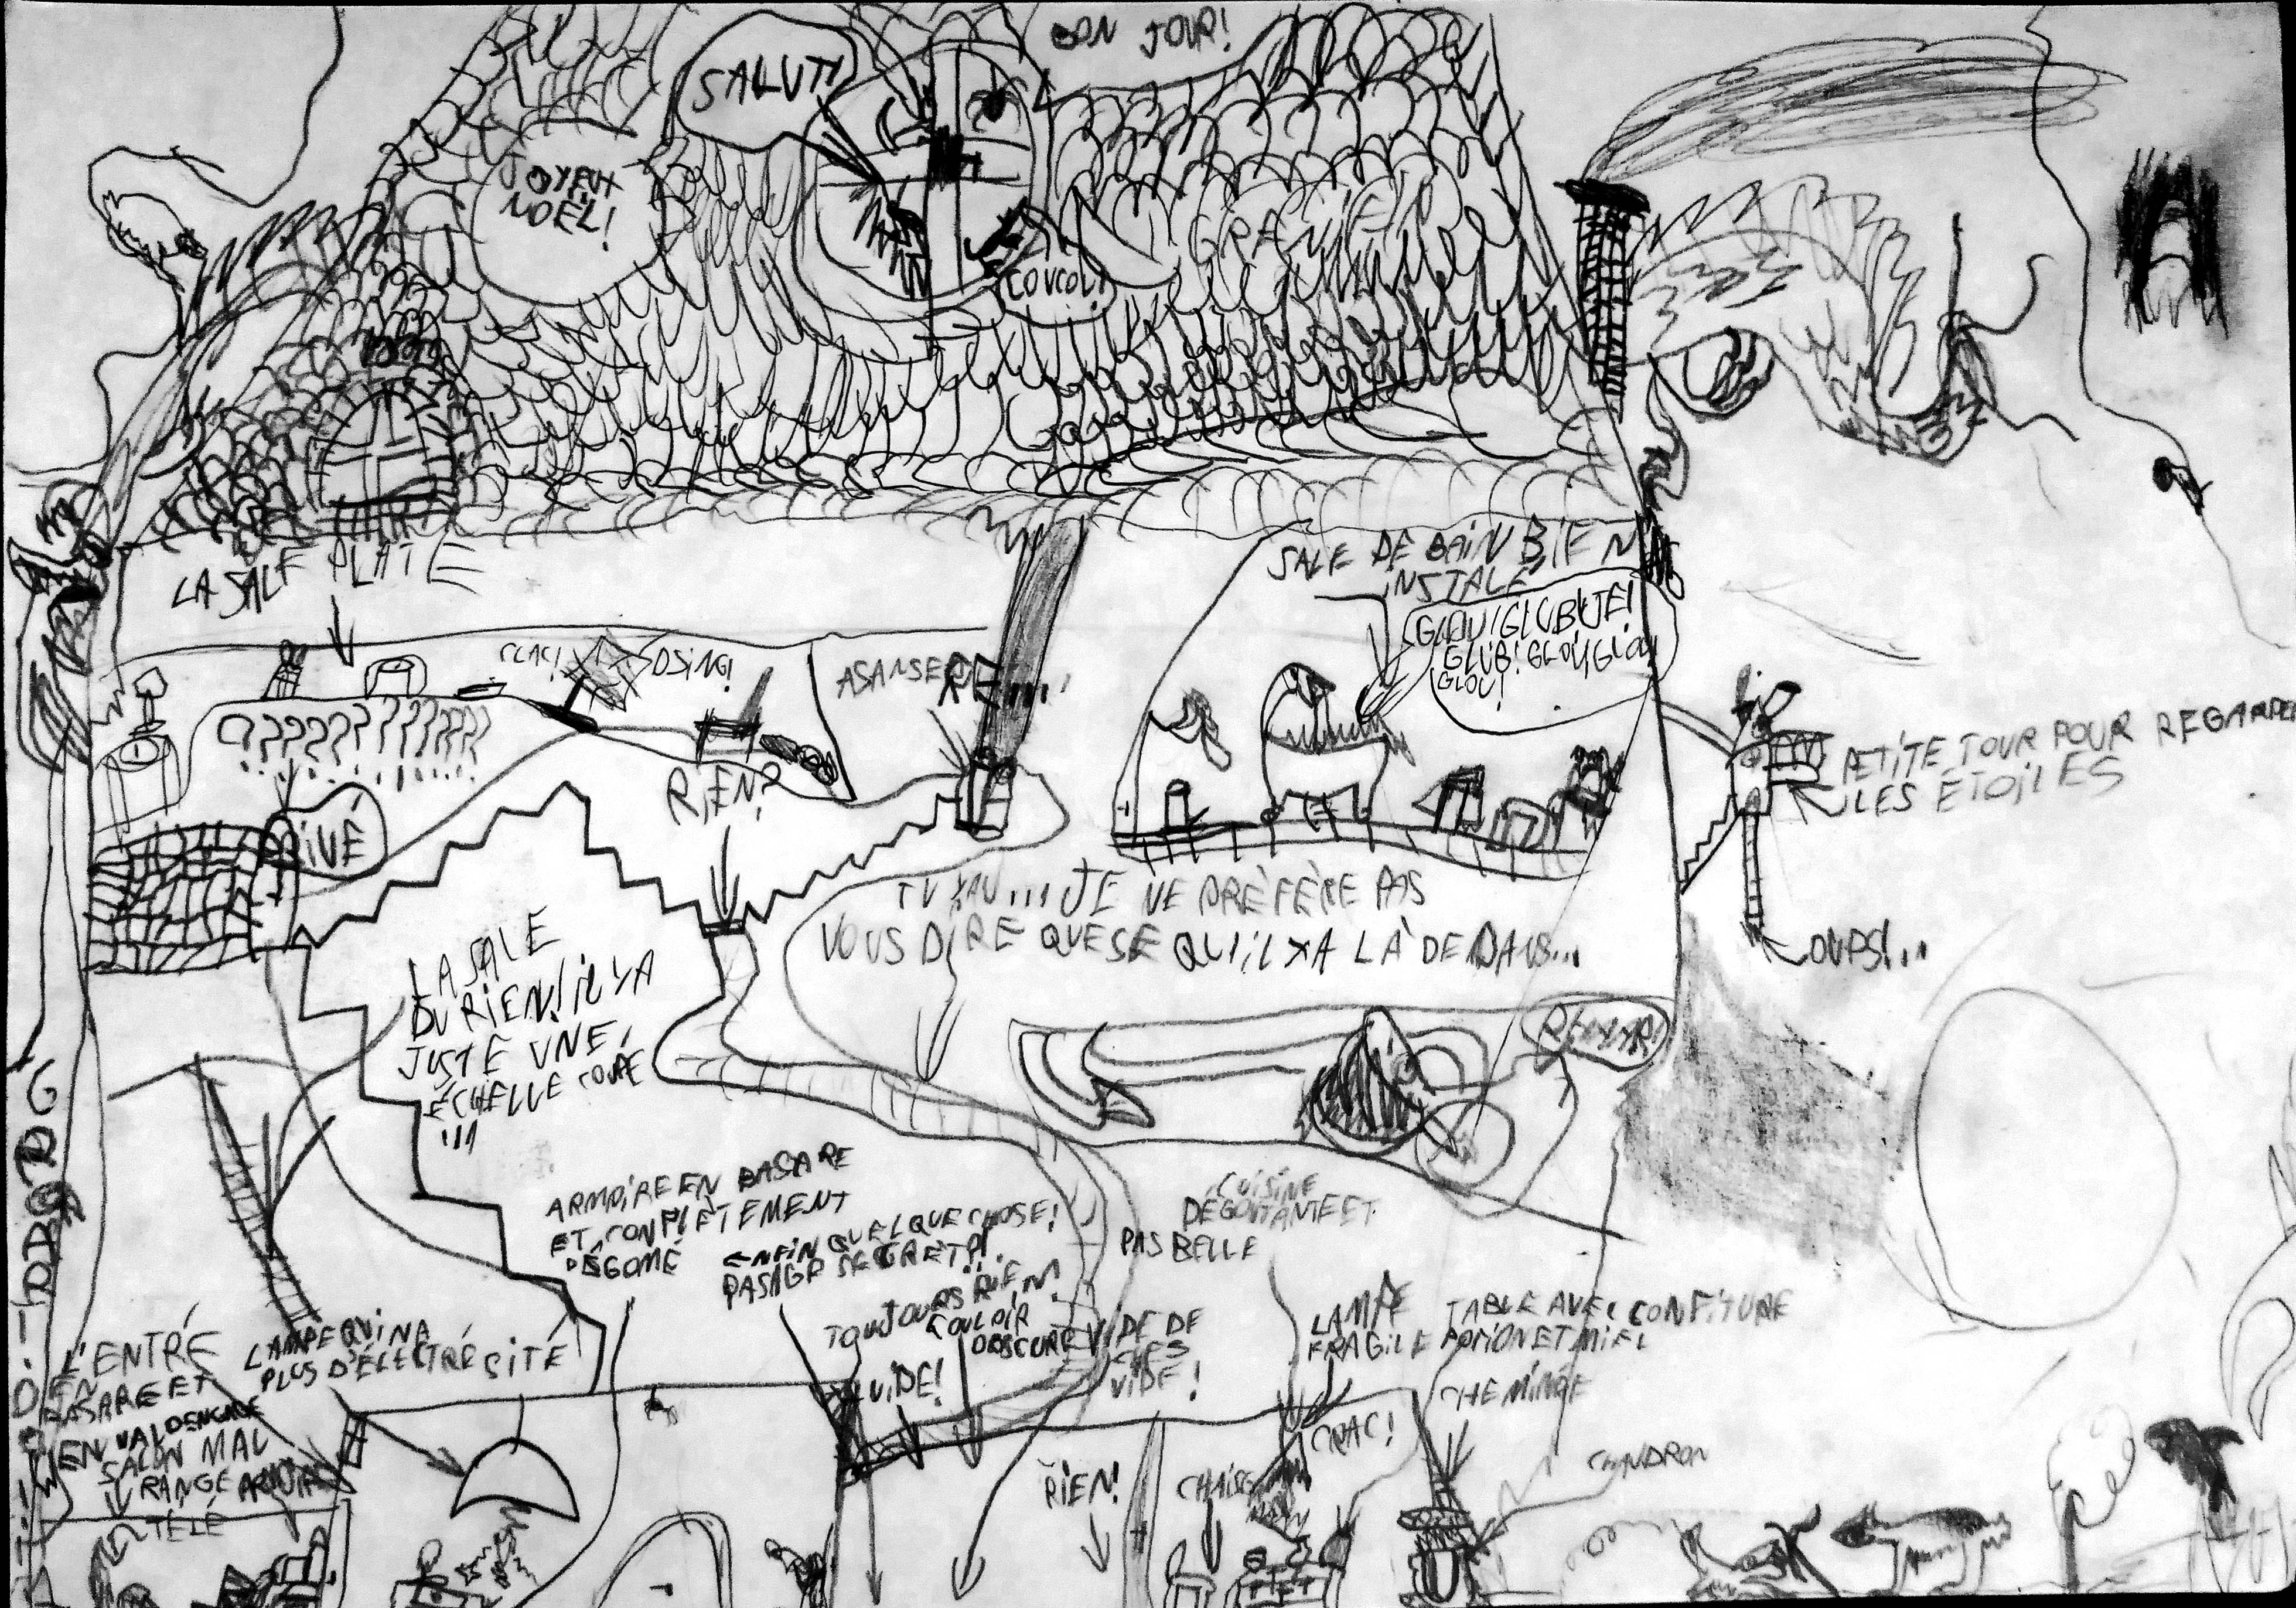 BON JOUR!
SALUT!
JOYEUX
NOËL!
COUCOU!
GRANIÉ
LA SALE PLATE
SALE DE BAIN BIEN
INSTALÉ
CLAC!
DSING!
ASANSERE....
GLOU!GLUB!JE!
GLUB!GLOUGLOU
GLOU!
RIEN?
PETITE TOUR POUR REGARDER
LES ÉTOILES
OUPS!...
JE NE PRÉFÈRE PAS
VOUS DIRE QUESE QUI IL YA LÀ DEDANS...
LA SALE
DU RIEN! IL YA
JUSTE UNE
ÉCHELLE COUPÉ
...
ARMOIRE EN BASARE
ET COMPLÈTEMENT
DÉGOMÉ
ENFIN QUELQUE CHOSE!
PASAGE SEGRET!
TOUJOURS RIEN!
COULOIR
OBSCURE
CUISINE
DÉGOUTANTE ET
PAS BELLE
VIDE DE
CHES
VIDE!
VIDE!
LAMPE
FRAGILE
TABLE AVEC CONFITURE
POTION ET MIEL
CHEMINÉE
L'ENTRÉ
EN
BASARE ET
EN VALDENGUE
LAMPE QUI NA
PLUS D'ÉLECTRÉSITÉ
SALON MAL
RANGÉ
TÉLÉ
CRAC!
RIEN!
CHAISE
CHAUDRON